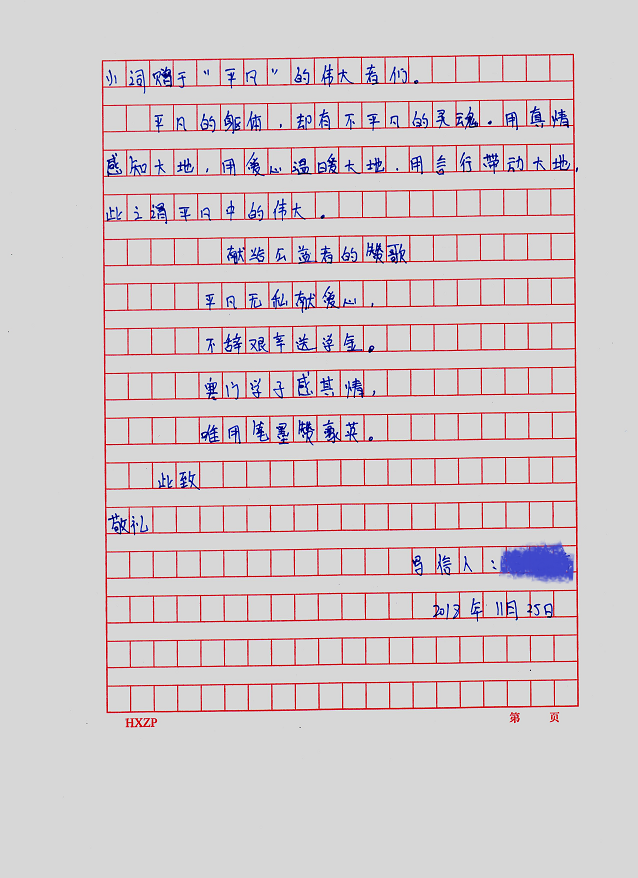 小词赠于“平凡”的伟大者们。
平凡的躯体，却有不平凡的灵魂。用真情
感知大地，用爱心温暖大地，用言行带动大地，
此之谓平凡中的伟大。
献给公益者的赞歌
平凡无私献爱心，
不辞艰辛送学金。
寒门学子感其情，
唯用笔墨赞豪英。
此致
敬礼
写信人：
2013年11月25日
HXZP
第 页